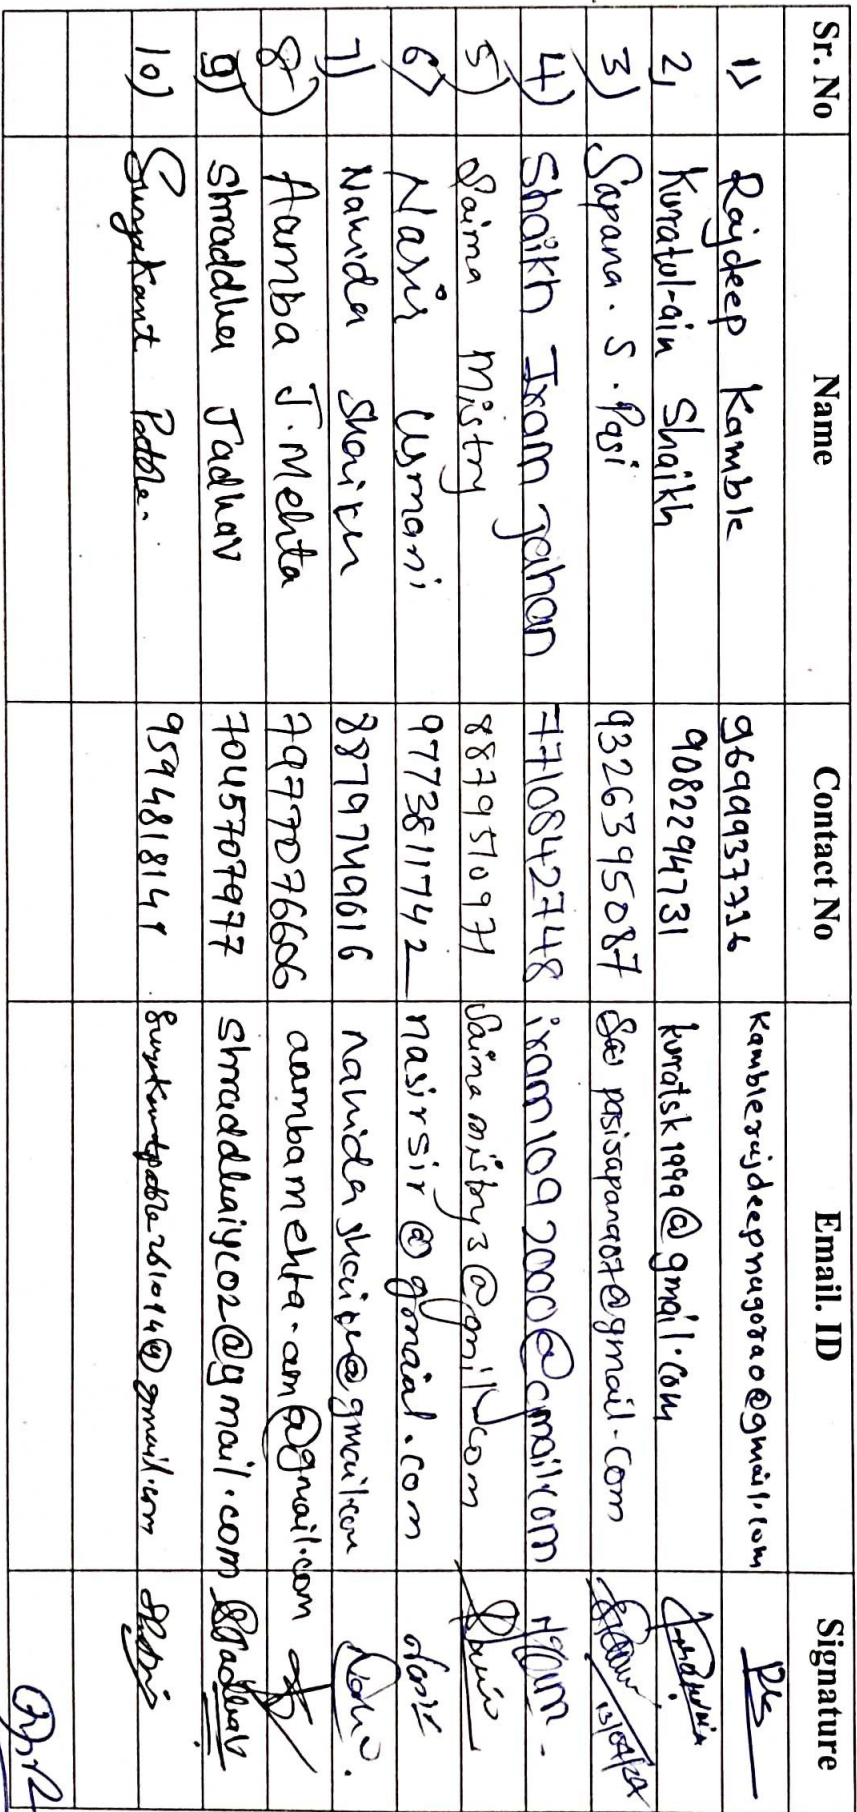 Sr. No Name Contact No Email. ID Signature
1) Rajdeep Kamble 9699937736 Kamblerajdeepnagorao@gmail.com
2) Kuratul-ain Shaikh 9082294731 kuratsk1999@gmail.com
3) Sapana. S. Pasi 9326395087 pasisapana907@gmail.com 13/04/24
4) Shaikh Iram Jahan 7710842748 iram1092000@gmail.com Iram
5) Saima Mistry 8879510971 Saimamistry3@gmil.com
6) Nasir Usmani 9773811742 nasirsir@gmaial.com
7) Nahida Shaikh 8879749616 nahidashaikh@gmail.com
8) Aamba J. Mehta 7977076606 aambamehta.am@gmail.com
9) Shraddha Jadhav 7045707977 shraddhaiyc02@gmail.com SJadhav
10) Suryakant 9594818141